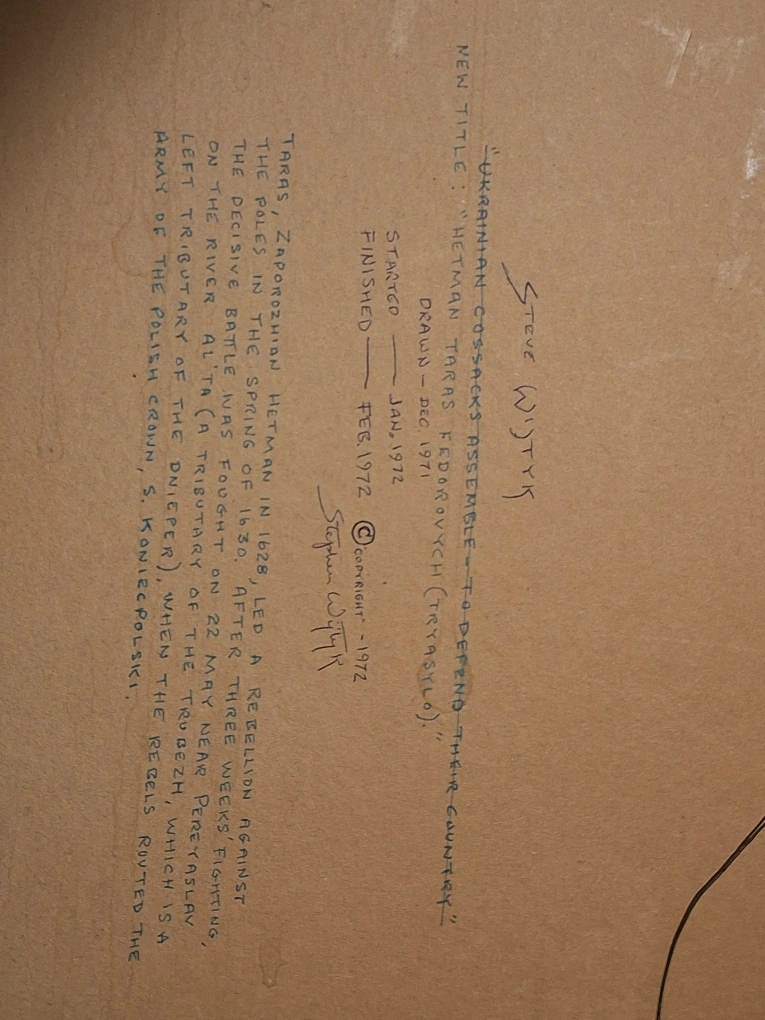 STEVE WIJTYK
"UKRAINIAN COSSACKS ASSEMBLE - TO DEFEND THEIR COUNTRY"
NEW TITLE: "HETMAN TARAS FEDOROVYCH (TRYASYLO)."
DRAWN - DEC. 1971
STARTED — JAN, 1972
FINISHED — FEB. 1972 © COPYRIGHT - 1972
Stephen Wijtyk
TARAS, ZAPOROZHIAN HETMAN IN 1628, LED A REBELLION AGAINST
THE POLES IN THE SPRING OF 1630. AFTER THREE WEEKS' FIGHTING,
THE DECISIVE BATTLE WAS FOUGHT ON 22 MAY NEAR PEREYASLAV
ON THE RIVER AL'TA (A TRIBUTARY OF THE TRUBEZH, WHICH IS A
LEFT TRIBUTARY OF THE DNIEPER), WHEN THE REBELS ROUTED THE
ARMY OF THE POLISH CROWN, S. KONIECPOLSKI.